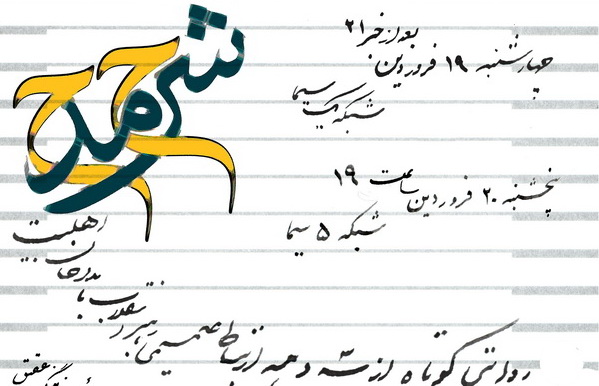 شرح مدح
بعد از خبر ۲۱
چهارشنبه ۱۹ فروردین
شبکه یک سیما
پنجشنبه ۲۰ فروردین ساعت ۱۹
شبکه ۵ سیما
روایتی کوتاه از سه دهه ارتباط صمیمی رهبر انقلاب با مداحان اهلبیت